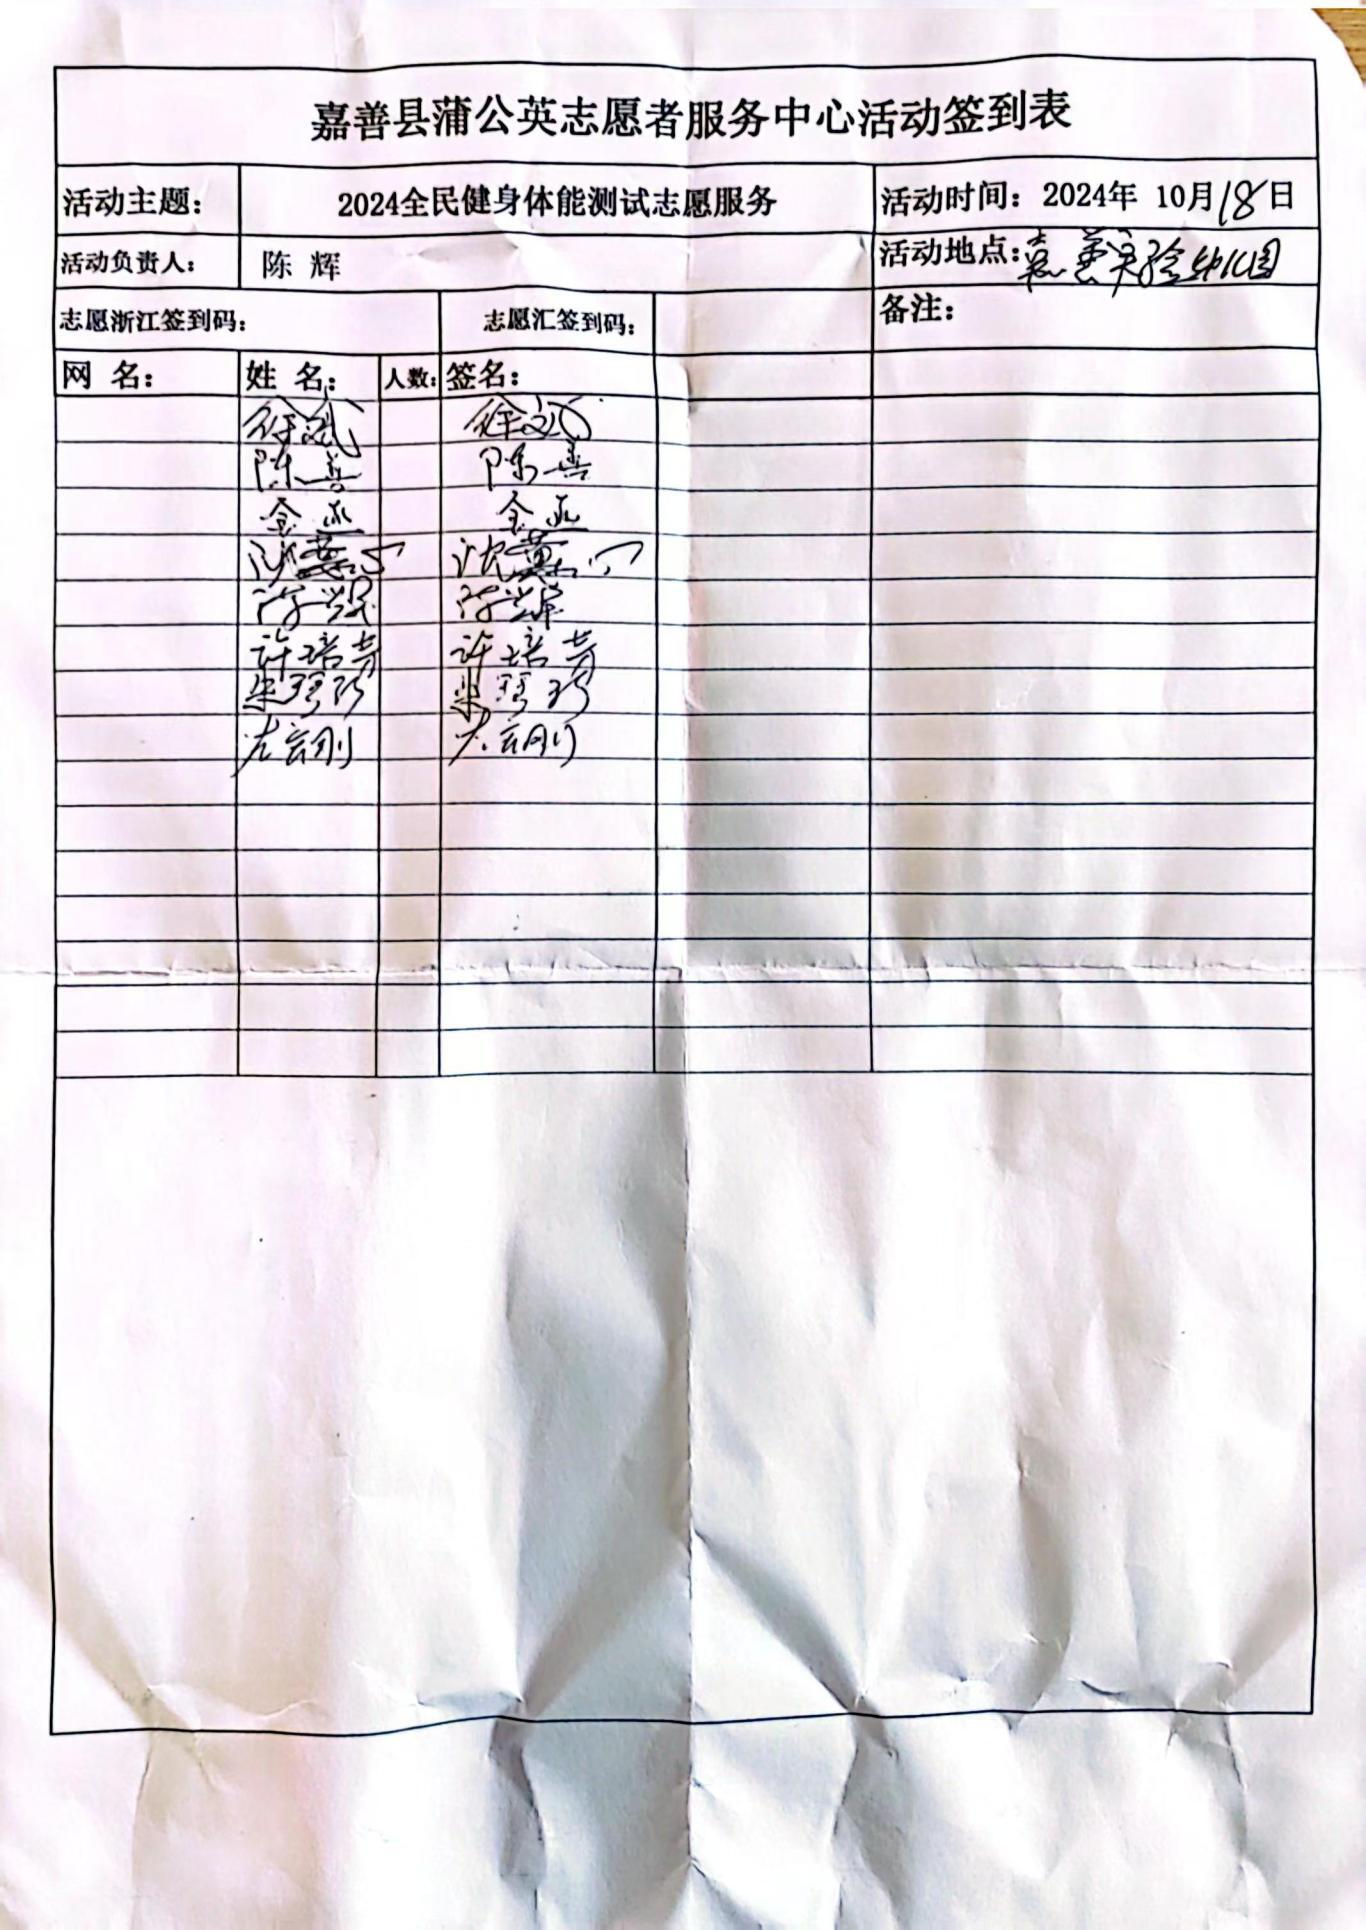 嘉善县蒲公英志愿者服务中心活动签到表
活动主题： 2024全民健身体能测试志愿服务 活动时间：2024年 10月18日
活动负责人： 陈 辉 活动地点：嘉善实验幼儿园
志愿浙江签到码： 志愿汇签到码： 备注：
网 名： 姓 名： 人数： 签名：
徐斌 徐斌
陈善 陈善
金 金
沈 沈
许培芳 许培芳